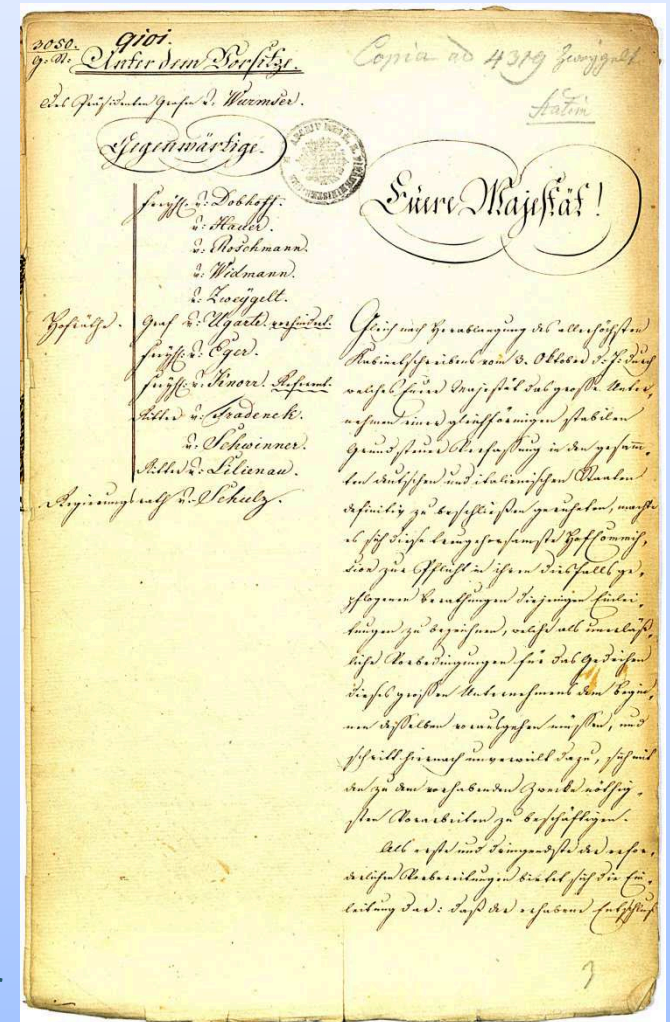 3050.
G. St.
gioi.
Unter dem Vorsitze.
des Präsidenten Grafen v. Wurmser.
Copia ad 4319 Zweygelt
Statim
Gegenwärtige.
Euere Majestät!
Freyh. v. Dobhoff.
v. Hauer.
v. Roschmann.
v. Widmann.
v. Zweygelt.
Hofräthe. Graf v. Ugarte.
Freyh. v. Eger.
Freyh. v. Knorr. Referent.
Ritter v. Fradenek.
v. Schwinner.
Ritter v. Lilienau.
Regierungsrath v. Schulz.
Gleich nach Herablangung des allerhöchsten
Kabinetschreibens vom 3. Oktober d. J. durch
welches Euere Majestät das große Unter,
nehmen einer gleichförmigen stabilen
Grundsteuer Verfassung in den gesamm,
ten deutschen und italienischen Staaten
definitiv zu beschließen geruheten, machte
es sich diese treugehorsamste Hofkommiss,
ion zur Pflicht in ihren diesfalls ge,
pflogenen Berathungen diejenigen Einlei,
tungen zu bezeichnen, welche als unerläß,
liche Vorbedingungen für das Gedeihen
dieses großen Unternehmens dem Begin,
nen desselben vorausgehen müssen, und
schritt hiernach unverweilt dazu, sich mit
den zu dem vorhabenden Zwecke nöthig,
sten Vorarbeiten zu beschäftigen.
Als erste und dringendste der erfor,
derlichen Vorbereitungen bietet sich die Ein,
leitung dar: daß der erhabene Entschluß